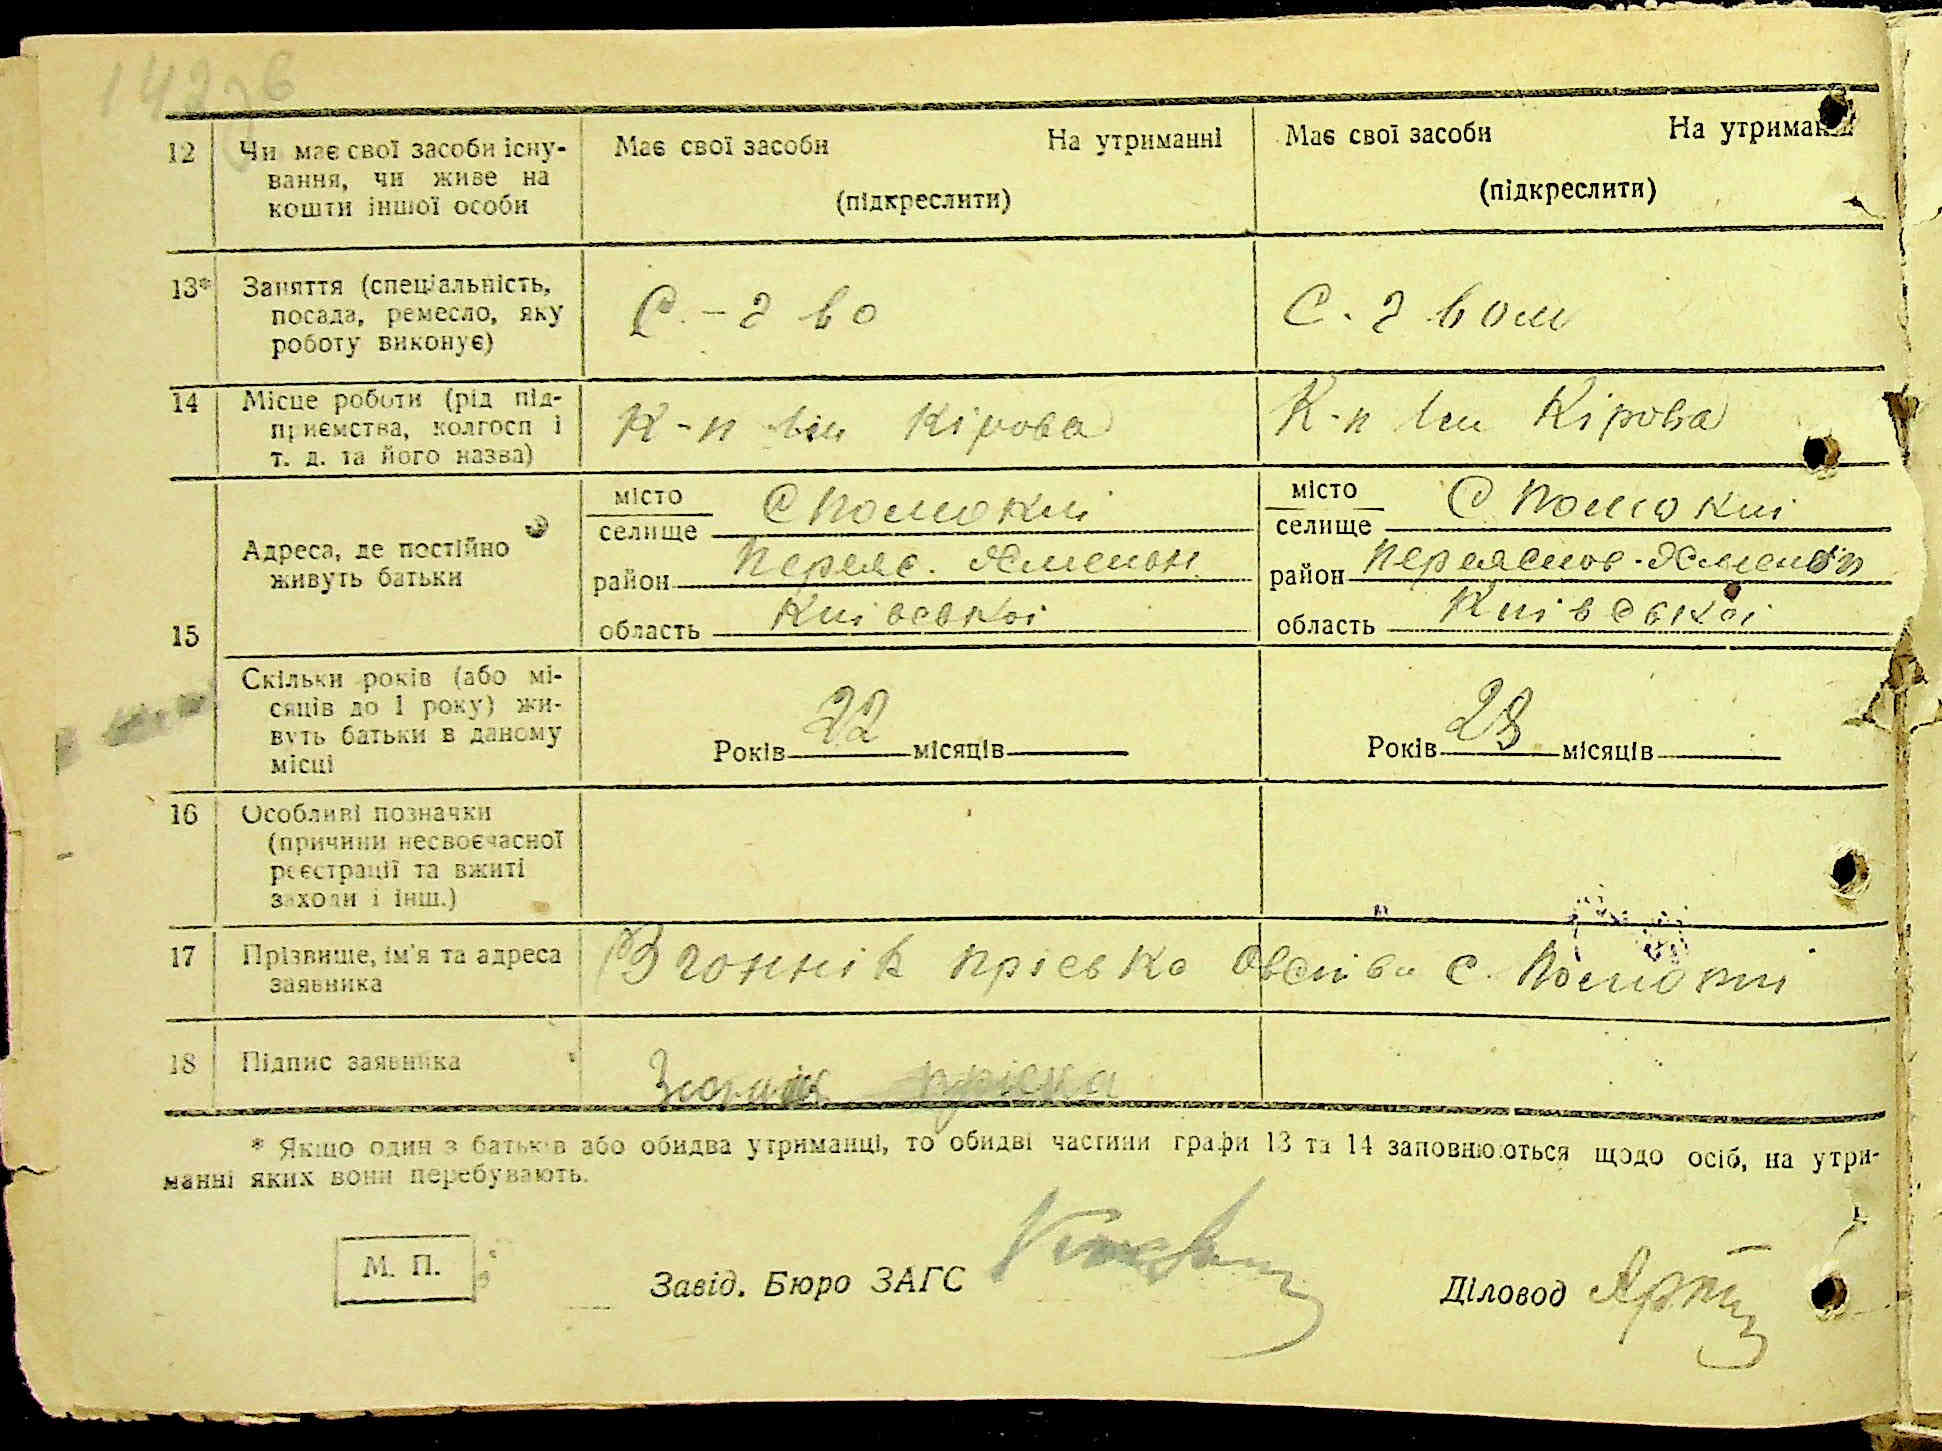 12 Чи має свої засоби існу- Має свої засоби На утриманні Має свої засоби На утриманні
вання, чи живе на
кошти іншої особи (підкреслити) (підкреслити)
13* Заняття (спеціальність,
посада, ремесло, яку С.-г во С. г вом
роботу виконує)
14 Місце роботи (рід під-
приємства, колгосп і К-п Ім Кірова К-п Ім Кірова
т. д. та його назва)
місто С Помокли місто С Помокли
селище селище
Адреса, де постійно
живуть батьки
район Переяс. Хмельн район Переяслов-Хмельн
15
область Київської область Київської
Скільки років (або мі-
сяців до 1 року) жи-
вуть батьки в даному
місці Років 22 місяців Років 28 місяців
16 Особливі позначки
(причини несвоєчасної
реєстрації та вжиті
заходи і інш.)
17 Прізвище, ім'я та адреса
заявника Прісько с. Помокли
18 Підпис заявника Пріська
* Якщо один з батьків або обидва утриманці, то обидві частини графи 13 та 14 заповнюються щодо осіб, на утри-
манні яких вони перебувають.
М. П.
Завід. Бюро ЗАГС Діловод